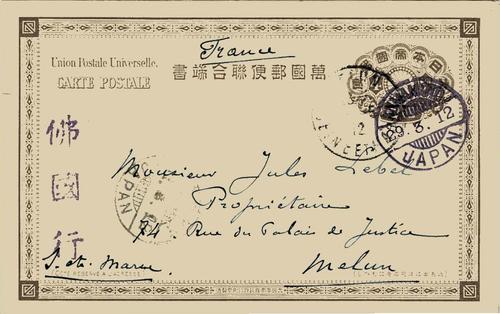 France
Union Postale Universelle.
CARTE POSTALE
書端合聯便郵國萬
佛國行
29. 3. 12
JAPAN
JAPAN
Monsieur Jules Lebel
Propriétaire
74. Rue du Palais de Justice
Melun
S. et. Marne.
CÔTÉ RÉSERVÉ À L'ADRESSE